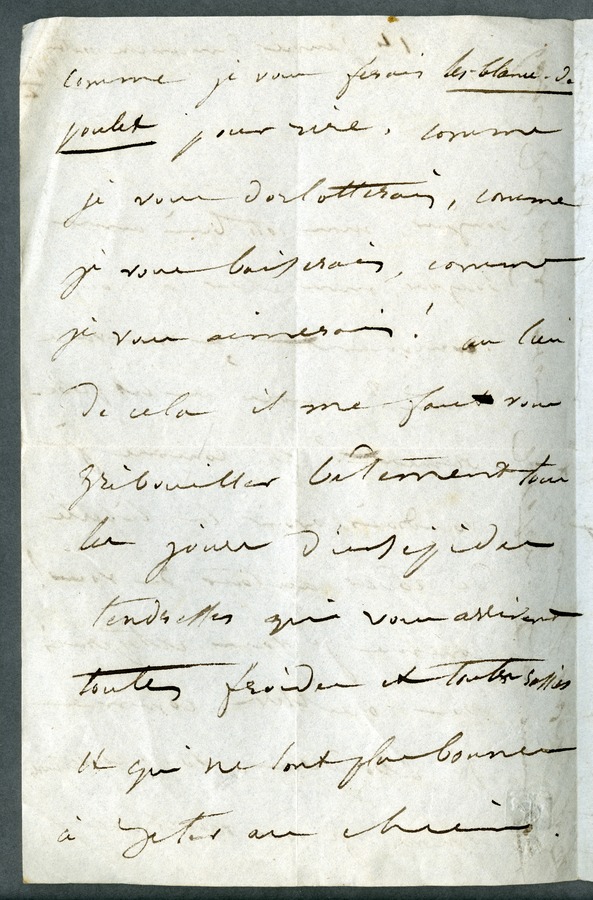 comme je vous ferais les blancs de
poulet pour rire, comme
je vous dorlotterais, comme
je vous baiserais, comme
je vous aimerais ! au lieu
de cela il me faut vous
gribouiller bêtement tous
les jours d'insipides
tendresses qui vous arrivent
toutes froides et toutes rassies
et qui ne sont plus bonnes
à jeter aux chiens.